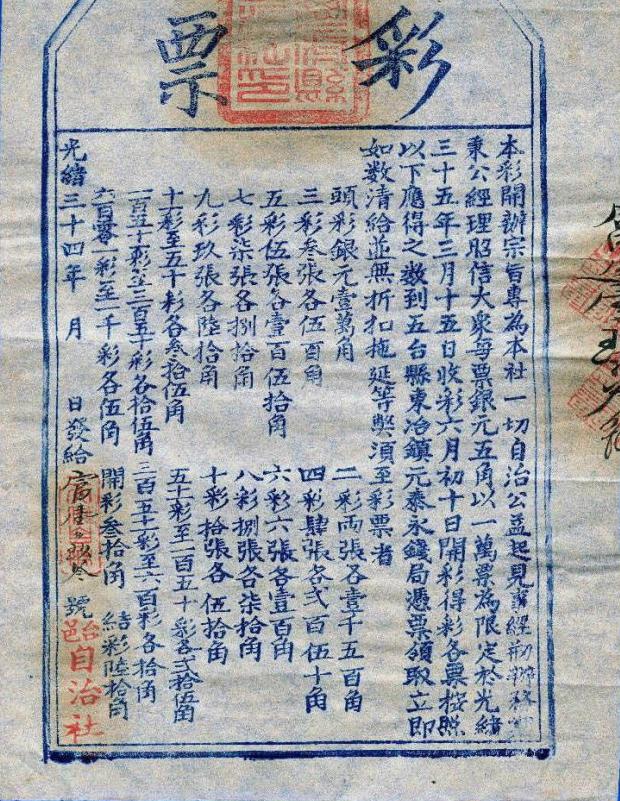 彩票
本彩開辦宗旨專為本社一切自治公益起見
秉公經理昭信大衆每票銀元五角以一萬票為限定於光緒
三十五年三月十五日收彩六月初十日開彩得彩各票按照
以下應得之數到五台縣東冶鎮元泰永錢局憑票領取立即
如數清給並無折扣拖延等獘須至彩票者
頭彩銀元壹萬角 二彩兩張各壹千五百角
三彩叁張各伍百角 四彩肆張各弍百伍十角
五彩伍張各壹百伍拾角 六彩六張各壹百角
七彩柒張各捌拾角 八彩捌張各柒拾角
九彩玖張各陸拾角 十彩拾張各伍拾角
十一彩至五十彩各叁拾伍角 五十一彩至一百五十彩各弍拾伍角
一百五十一彩至三百五十彩各拾伍角 三百五十一彩至六百彩各拾角
六百零一彩至一千彩各伍角 開彩叁拾角 結彩陸拾角
光緒三十四年 月 日發給 號 台邑自治社